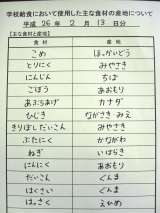 学校給食において使用した主な食材の産地について
平成 26 年 2 月 13 日分
【主な食材と産地】
食材 産地
こめ ほっかいどう
とりにく みやざき
にんじん ちば
ごぼう あおもり
あぶらあげ カナダ
ひじき ながさき みえ
きりぼしだいこん みやざき
ぶたにく かながわ
ねぎ いばらき
にんにく あおもり
だいこん ぐんま
はくさい ぐんま
はっさく えひめ